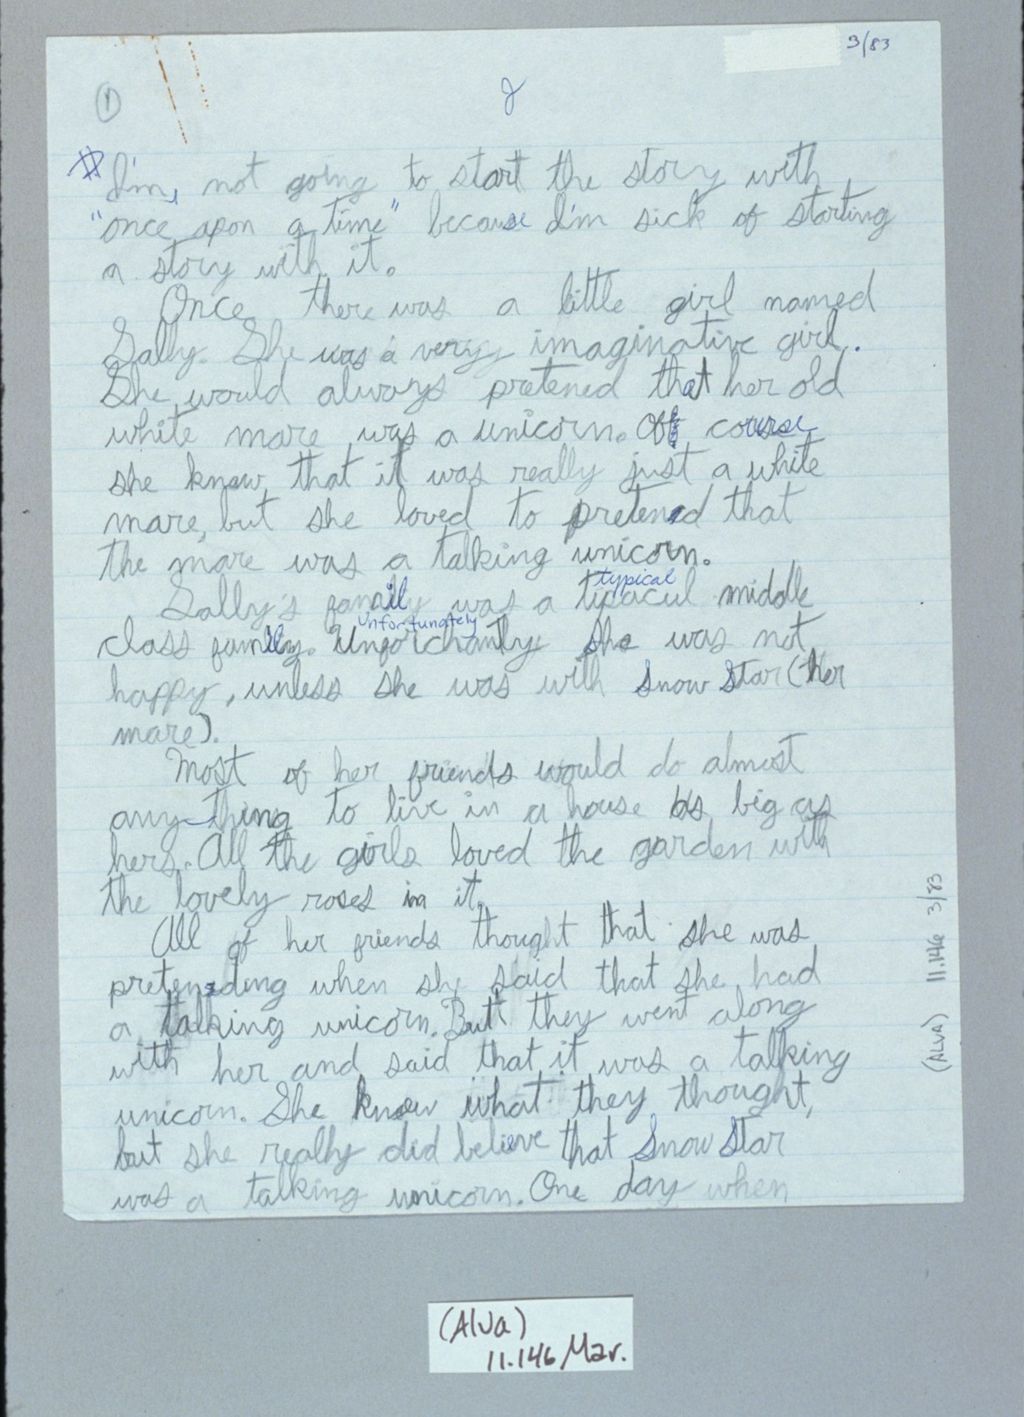 3/83
1
I'm, not going to start the story with
"once apon a time" because I'm sick of starting
a story with it.
Once there was a little girl named
Sally. She was a very imaginative girl.
She would always pretened that her old
white mare was a unicorn. Of course
she knew that it was really just a white
mare, but she loved to pretend that
the mare was a talking unicorn.
typical
Sally's family was a tipacul middle
Unfortunately
class family. Unforchantly she was not
happy, unless she was with Snow Star (her
mare).
Most of her friends would do almost
any thing to live in a house as big as
hers. All the girls loved the garden with
the lovely roses in it.
All of her friends thought that she was
pretending when she said that she had
a talking unicorn. But they went along
with her and said that it was a talking
unicorn. She knew what they thought,
but she really did believe that Snow Star
was a talking unicorn. One day when
(ALVA) 11.146 3/83
(Alva)
11.146 Mar.